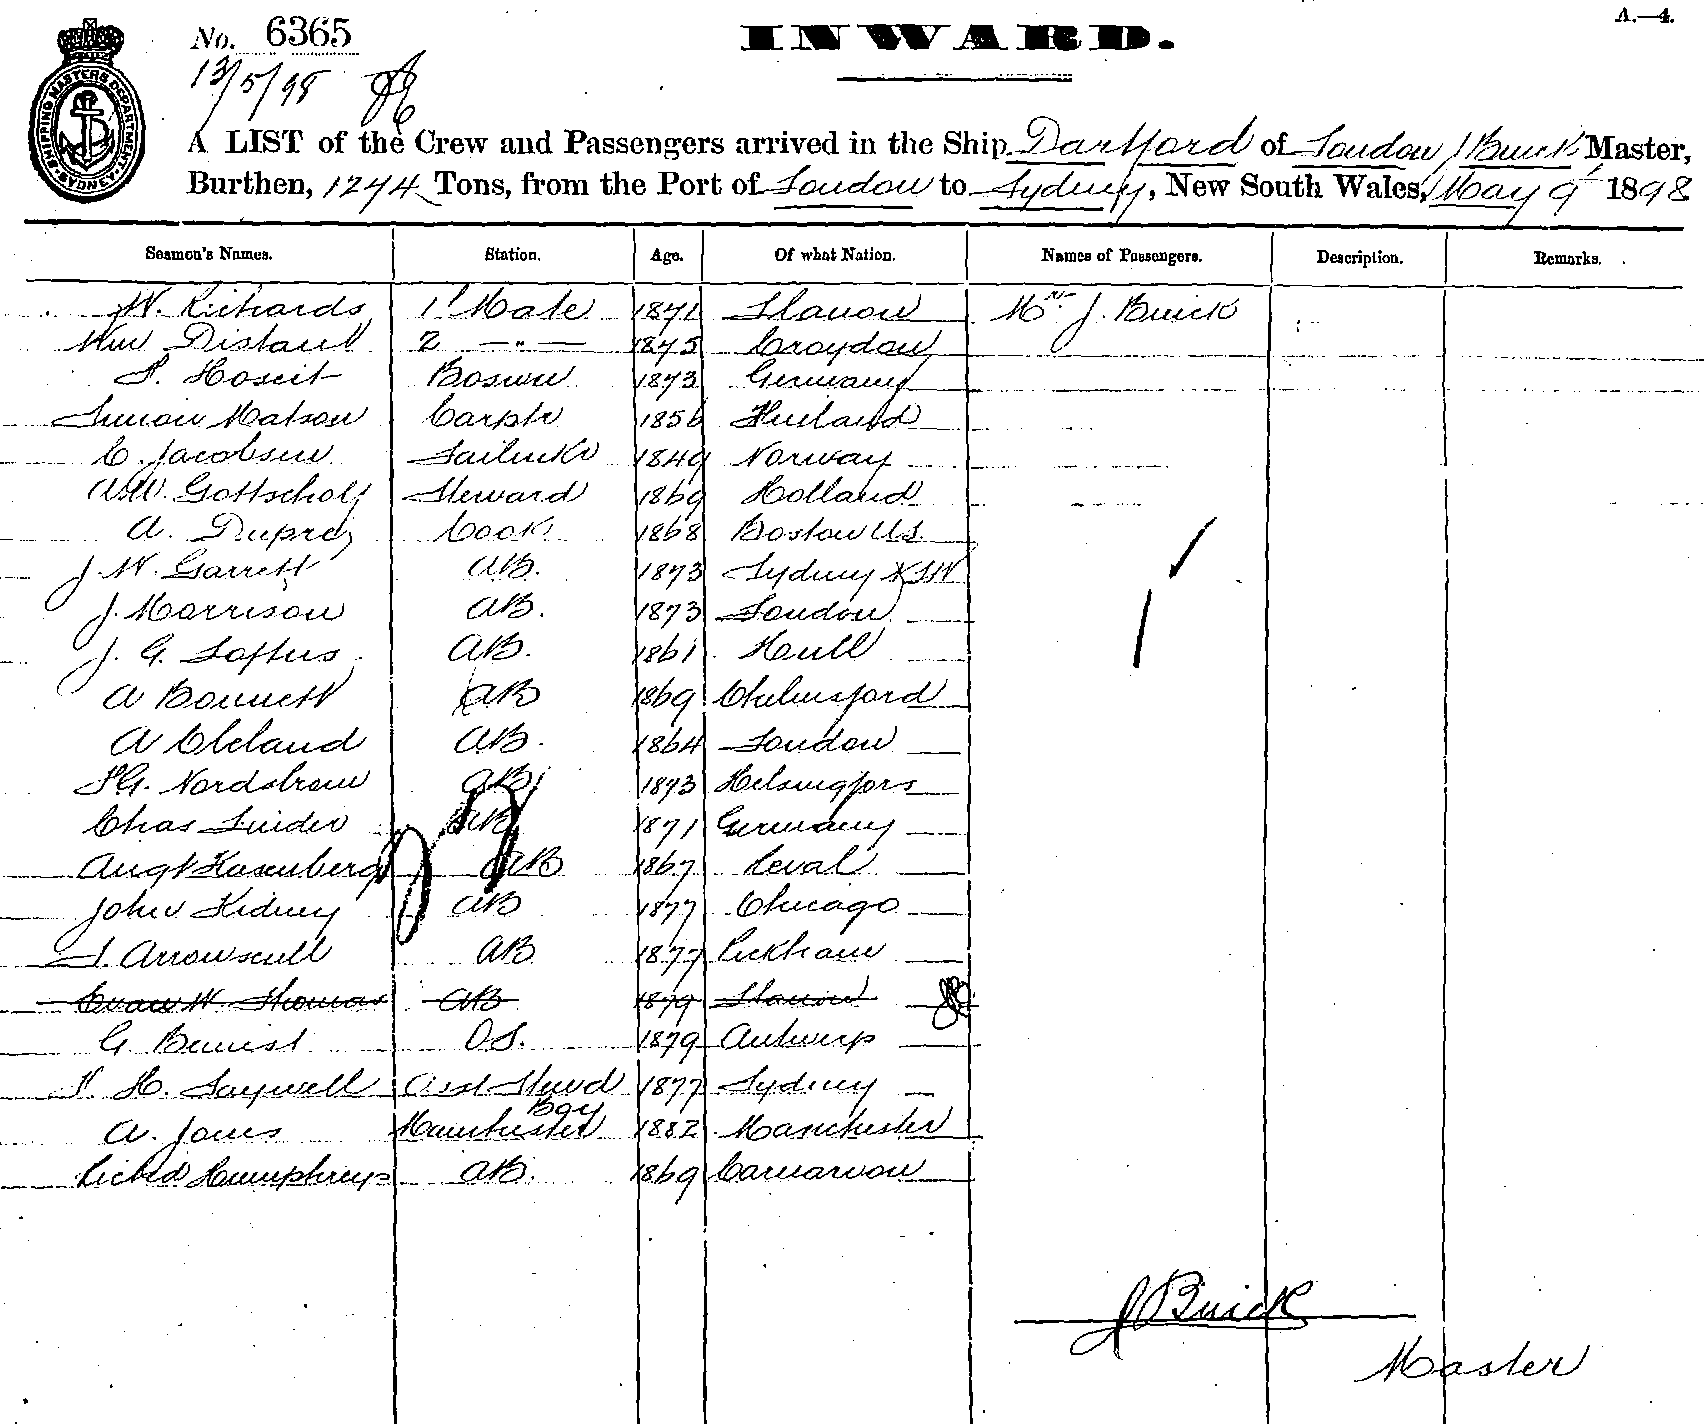 A.—4.
No. 6365
INWARD.
13/5/98
SHIPPING MASTERS DEPARTMENT
SYDNEY
A LIST of the Crew and Passengers arrived in the Ship Dartford of London J Buick, Master,
Burthen, 1274 Tons, from the Port of London to Sydney, New South Wales, May 9 1898
Seamen's Names. Station. Age. Of what Nation. Names of Passengers. Description. Remarks.
W. Richards 1st Mate 1871 Llanon Mrs J. Buick
Wm Distant 2 —"— 1875 Croydon
Boswn 1873 Germany
Simon Matson Carptr 1856 Finland
C. Jacobsen Sailmkr 1849 Norway
Steward 1869 Holland
A. Duprez Cook 1868 Boston U.S.
J. W. Garrett AB. 1873 Sydney NSW
J. Morrison AB. 1873 London
J. G. Loftus AB. 1861 Hull
A Bonnett AB 1869 Chelmsford
A Cleland AB. 1864 London
G. Nordstrom AB 1873 Helsingfors
Chas Linder AB 1871 Germany
Augt Kasenberg AB 1867 Reval
John Kidney AB 1877 Chicago
Arrowscull AB 1877 Peckham
Evan W. Thomas AB 1879 Llanon
G. Benist O.S. 1879 Antwerp
H. Saywell Asst Stewd 1877 Sydney
Boy
A. Jones Manchester 1882 Manchester
Richd Humphreys AB. 1869 Carnarvon
J Buick
Master